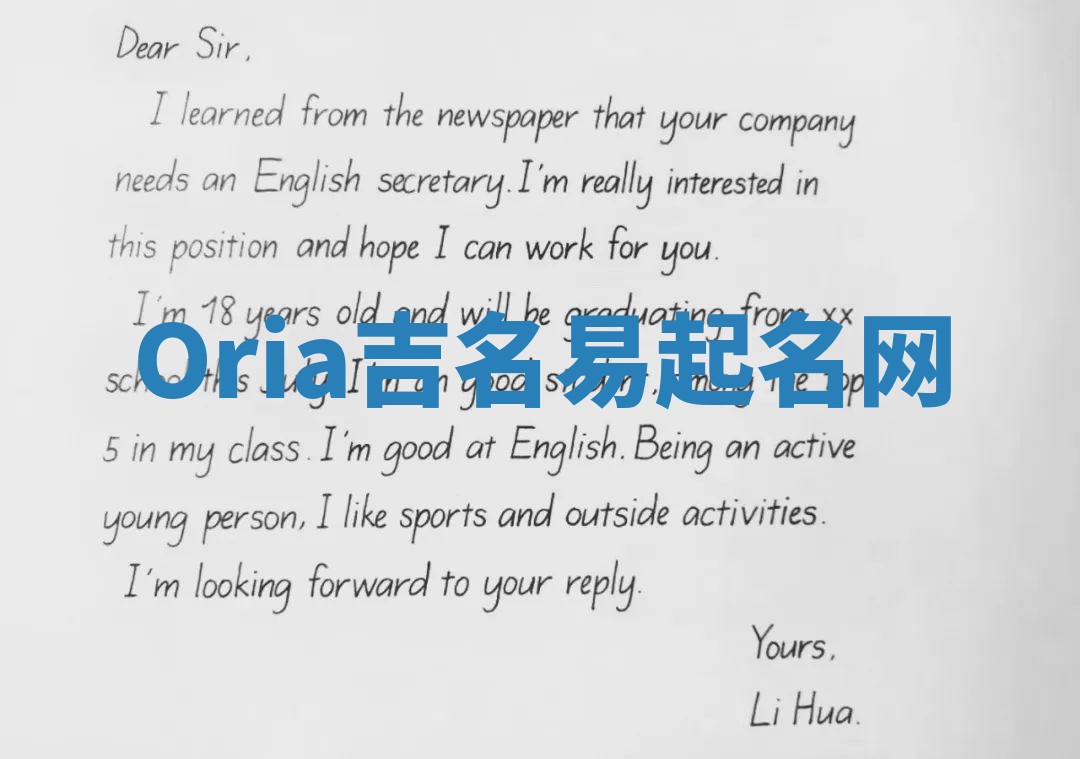 Dear Sir,
I learned from the newspaper that your company
needs an English secretary. I'm really interested in
this position and hope I can work for you.
I'm 18 years old and will be graduating from xx
Oria吉名易起名网
school this July. I'm an good student, among the top
5 in my class. I'm good at English. Being an active
young person, I like sports and outside activities.
I'm looking forward to your reply.
Yours,
Li Hua.